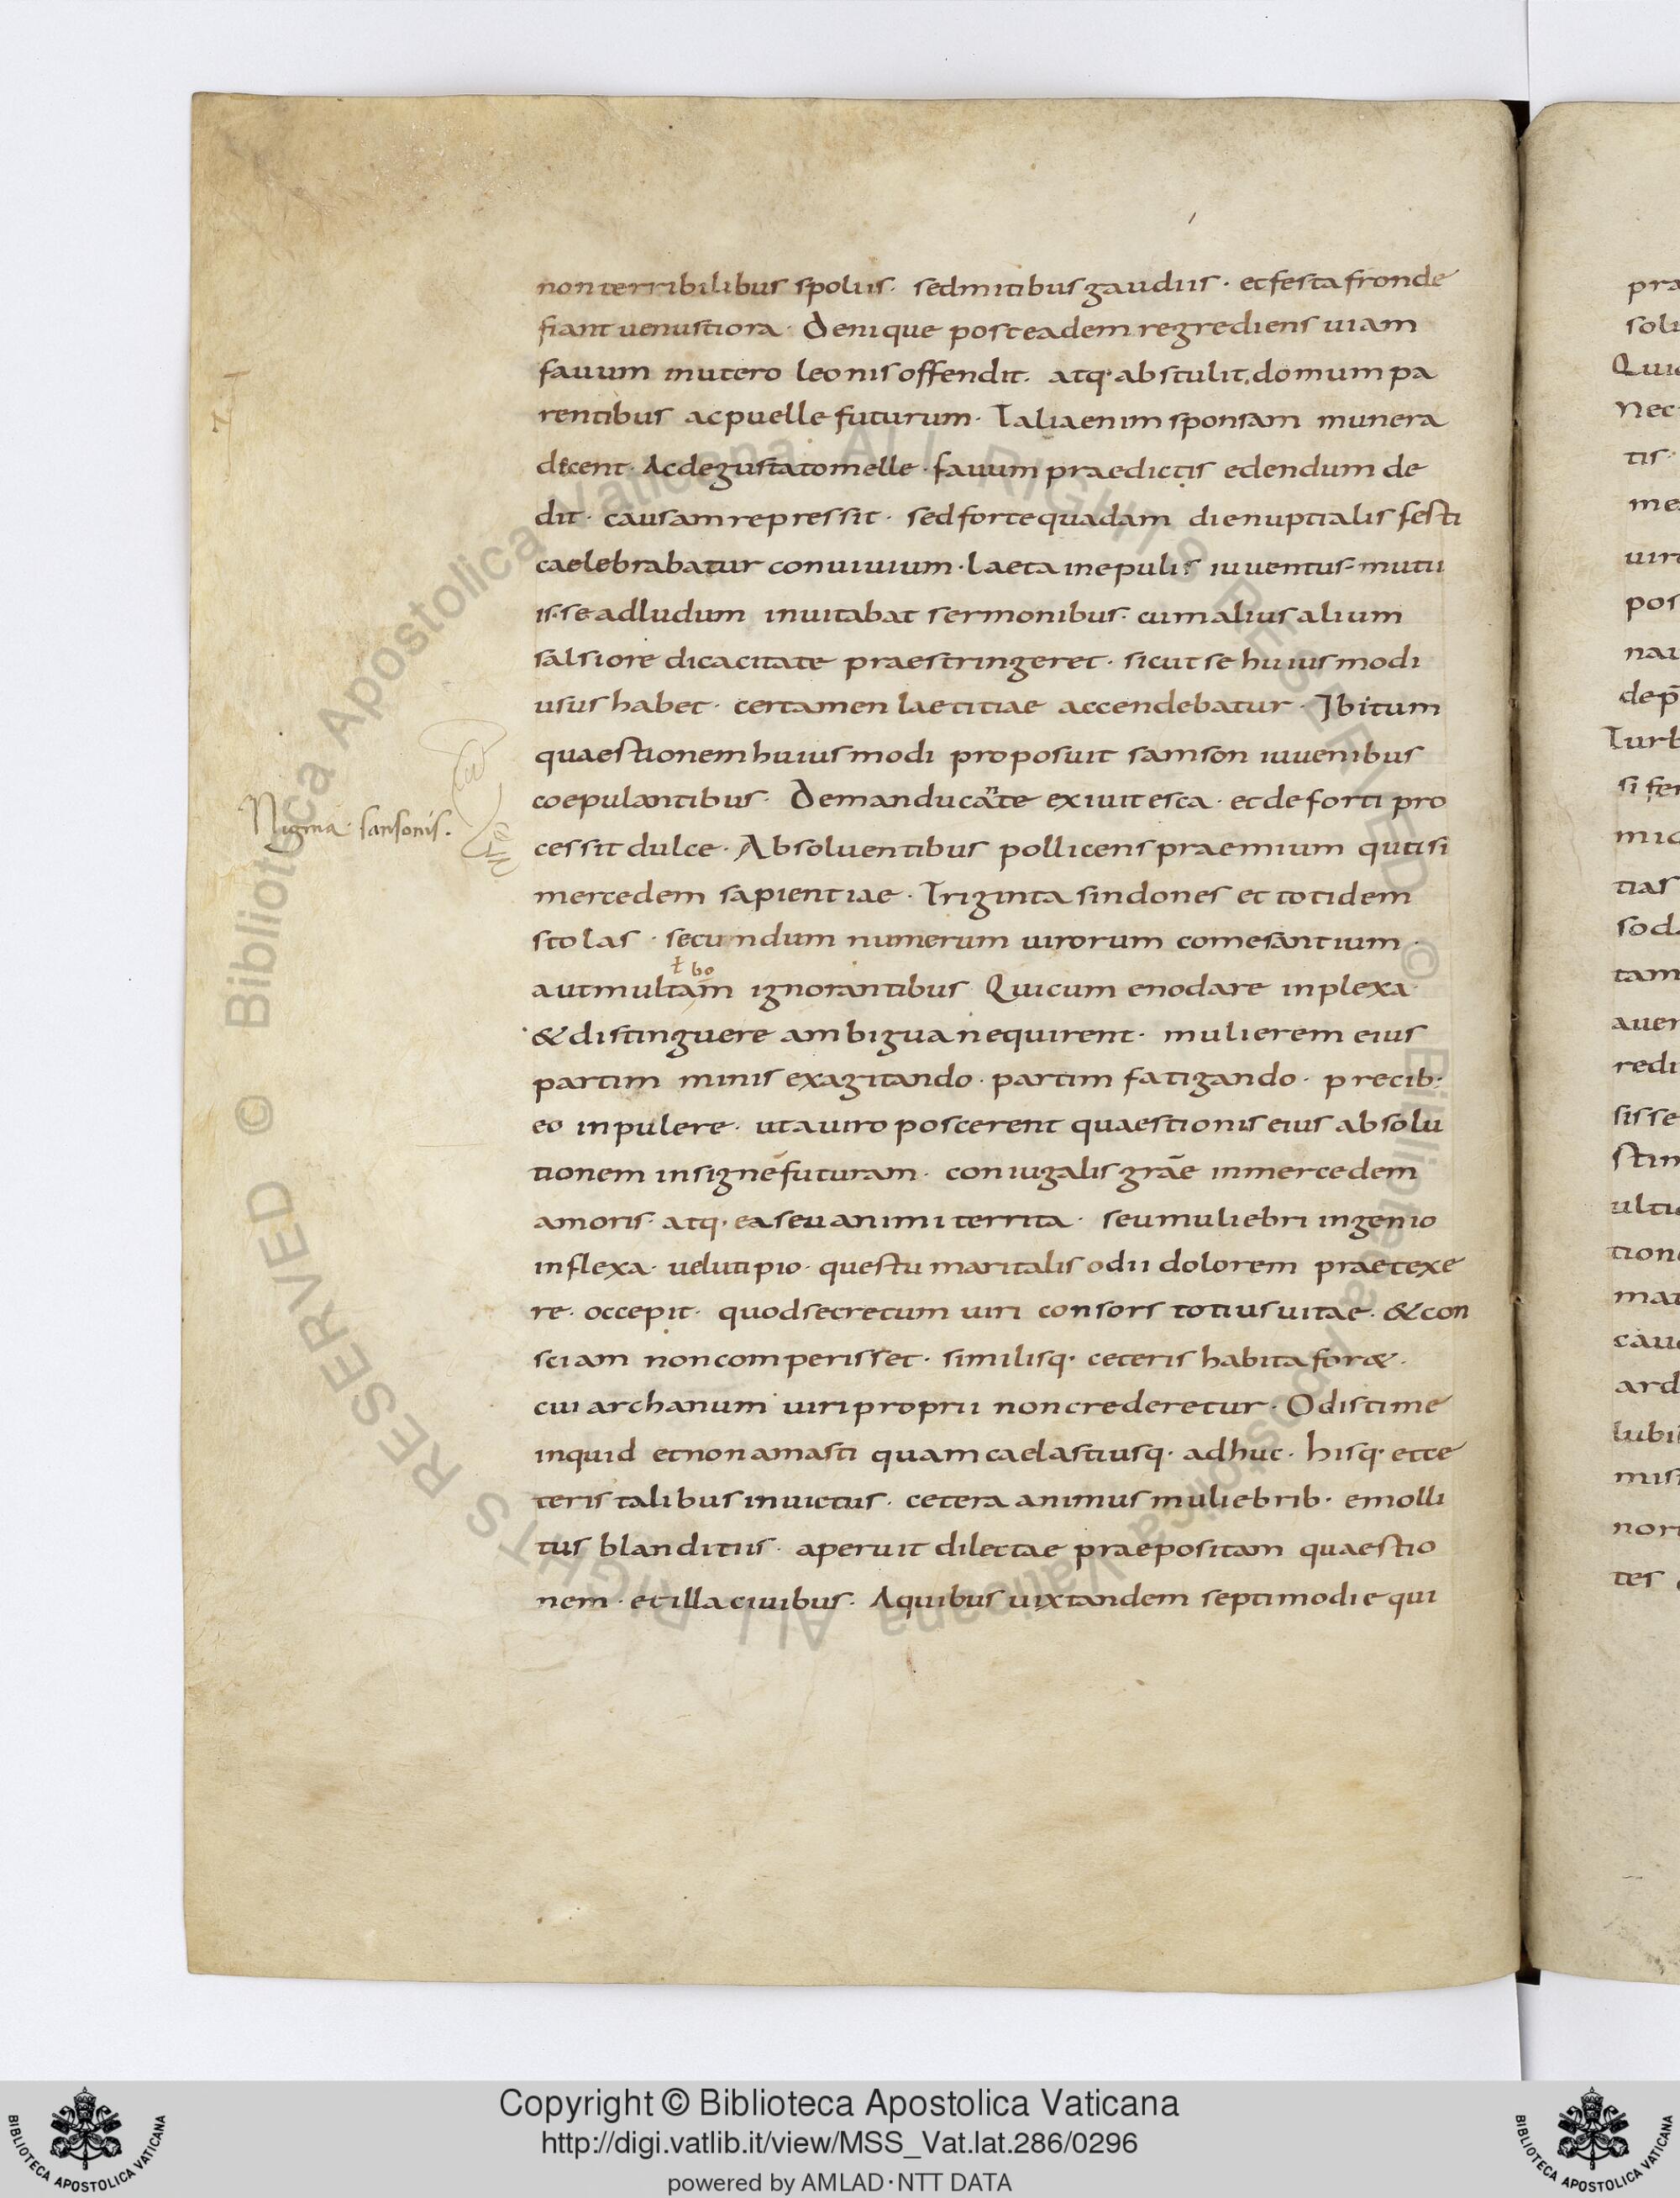 non terribilibus spoliis · sed mitibus gaudiis · et festa fronde
fiant venustiora · Denique post eadem regrediens viam
favum in utero leonis offendit · atq· abstulit domum pa
rentibus ac puelle futurum · Talia enim sponsam munera
decent · Ac degustato melle · favum praedictis edendum de
dit · causam repressit · sed forte quadam die nuptialis festi
caelebrabatur convivium · laeta in epulis iuventus mutu
is·se ad ludum invitabat sermonibus · cum alius alium
salsiore dicacitate praestringeret · sicut se huiusmodi
usus habet · certamen laetitiae accendebatur · Ibi tum
quaestionem huiusmodi proposuit samson iuvenibus
Nigma sansonis.
coepulantibus · De manducante exivit esca · et de forti pro
cessit dulce · Absolventibus pollicens praemium quasi
mercedem sapientiae · Triginta sindones et totidem
stolas · secundum numerum virorum comesantium ·
ł bo
aut multam ignorantibus Qui cum enodare inplexa·
& distinguere ambigua nequirent · mulierem eius
partim minis exagitando · partim fatigando · precib·
eo inpulere · ut a viro poscerent quaestionis eius absolu
tionem insignē futuram · coniugalis grāe in mercedem
amoris · atq· ea seu animi territa · seu muliebri ingenio
inflexa · veluti pio · questu maritalis odii dolorem praetexe
re · occepit · quod secretum viri consors totius vitae · & con
sciam non comperisset · similisq· ceteris habita foræ ·
cui archanum viri proprii non crederetur · Odisti me
inquid et non amasti quam caelastiusq· adhuc · hisq· et ce
teris talibus invictus · cetera animus muliebrib· emolli
tus blanditiis · aperuit dilectae praepositam quaestio
nem · et illa civibus · A quibus vix tandem septimo die qui
Copyright © Biblioteca Apostolica Vaticana
http://digi.vatlib.it/view/MSS_Vat.lat.286/0296
powered by AMLAD·NTT DATA
BIBLIOTECA APOSTOLICA VATICANA
BIBLIOTECA APOSTOLICA VATICANA
© Biblioteca Apostolica Vaticana ALL RIGHTS RESERVED
© Biblioteca Apostolica Vaticana ALL RIGHTS RESERVED